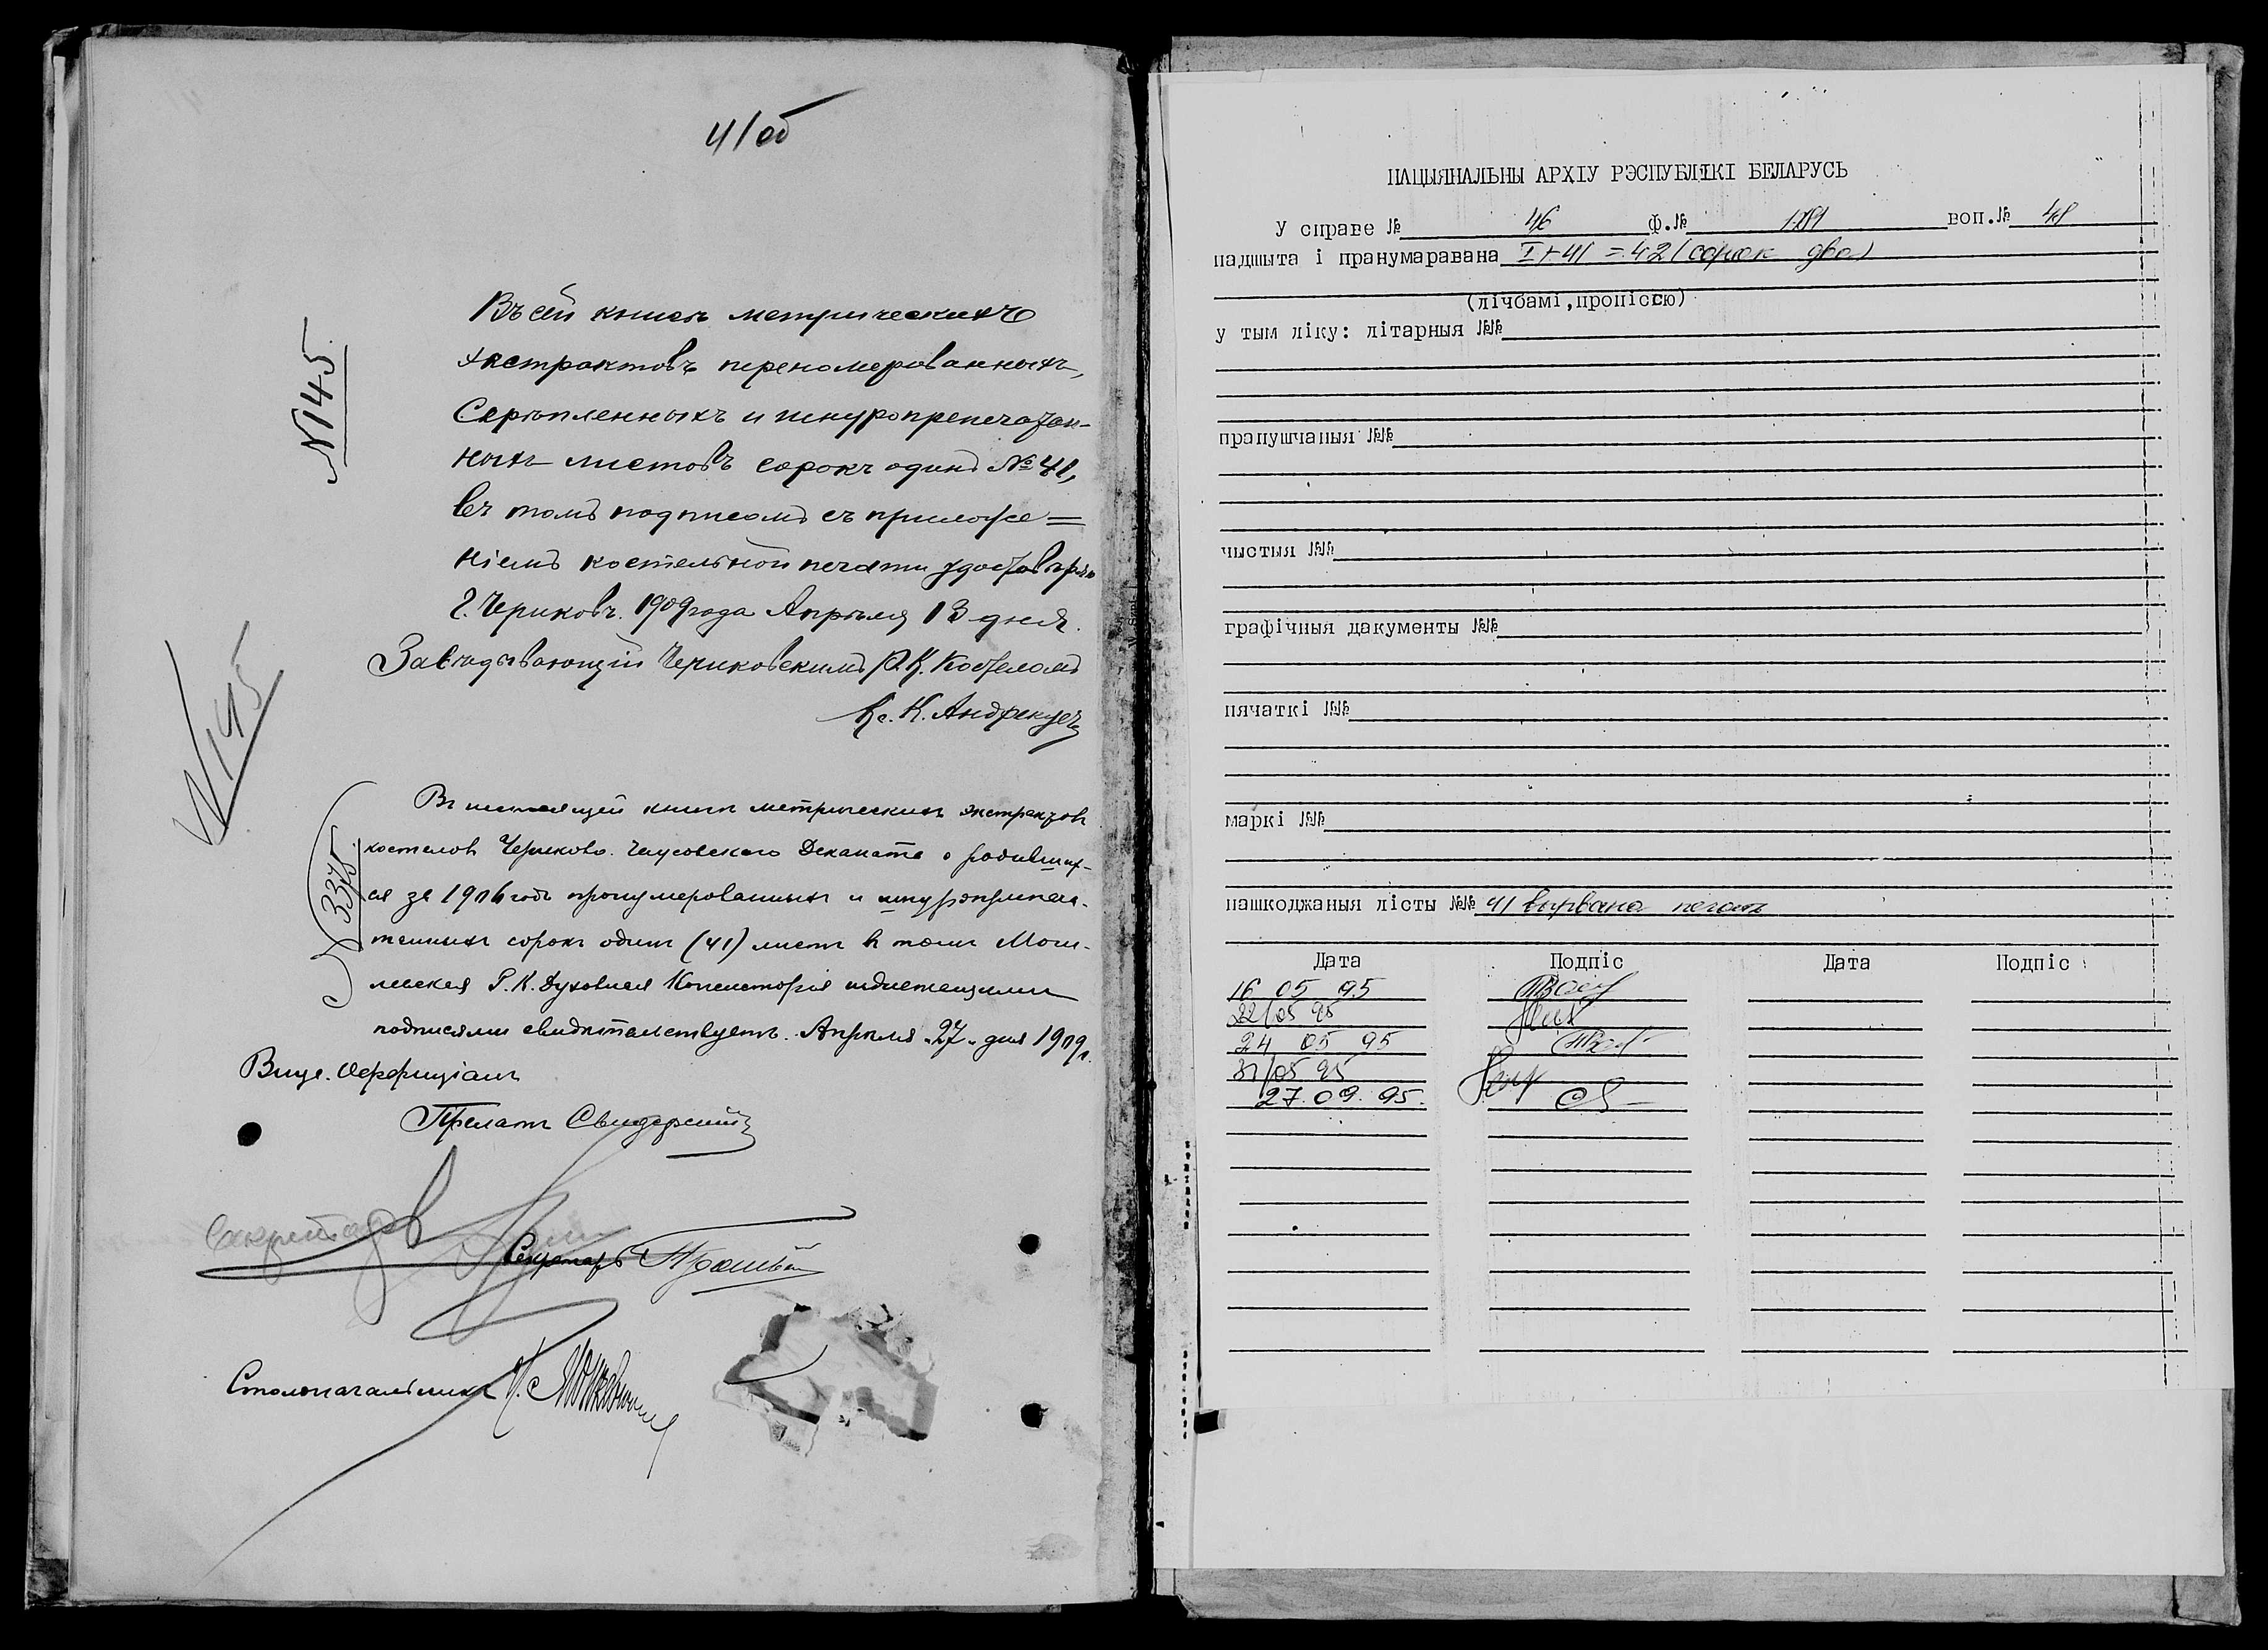 41 об
№ 145.
Въ сей книгѣ метрическихъ
экстрактовъ переномерованныхъ,
скрѣпленныхъ и шнуропрепечатан-
ныхъ листовъ сорокъ одинъ № 41,
въ томъ подписомъ съ приложе=
ніемъ костельной печати удостовѣряю
г. Чериковъ. 1909 года Апрѣля 13 дня.
Завѣдывающій Чериковскимъ Р. К. Костеломъ
Кс. К. Андрекусъ
№ 145
3375.
Въ настоящей книгѣ метрическихъ экстрактовъ
костеловъ Чериково-Чаусовскаго Деканата о родивших-
ся за 1906 годъ пронумерованныхъ и шнуроприпеча-
танныхъ сорокъ одинъ (41) листъ въ томъ Моги-
левская Р. К. Духовная Консисторія
подписями свидѣтельствуетъ. Апрѣля „27„ дня 1909 г.
Вице-Оффиціалъ
Прелатъ Свидерскій
Секретарь
Секретарь
Столоначальникъ
НАЦЫЯНАЛЬНЫ АРХІУ РЭСПУБЛІКІ БЕЛАРУСЬ
У справе № 46 ф.№ 1781 воп.№ 48
падшыта і пранумаравана I+41=42 (сорок два)
(лічбамі,пропіссю)
у тым ліку: літарныя №№
прапушчаныя №№
чыстыя №№
графічныя дакументы №№
пячаткі №№
маркі №№
пашкоджаныя лісты №№ 41 вырвана печать
Дата Подпіс Дата Подпіс
16 05 95
22/05 95
24 05 95
31/05 95
27.09.95.